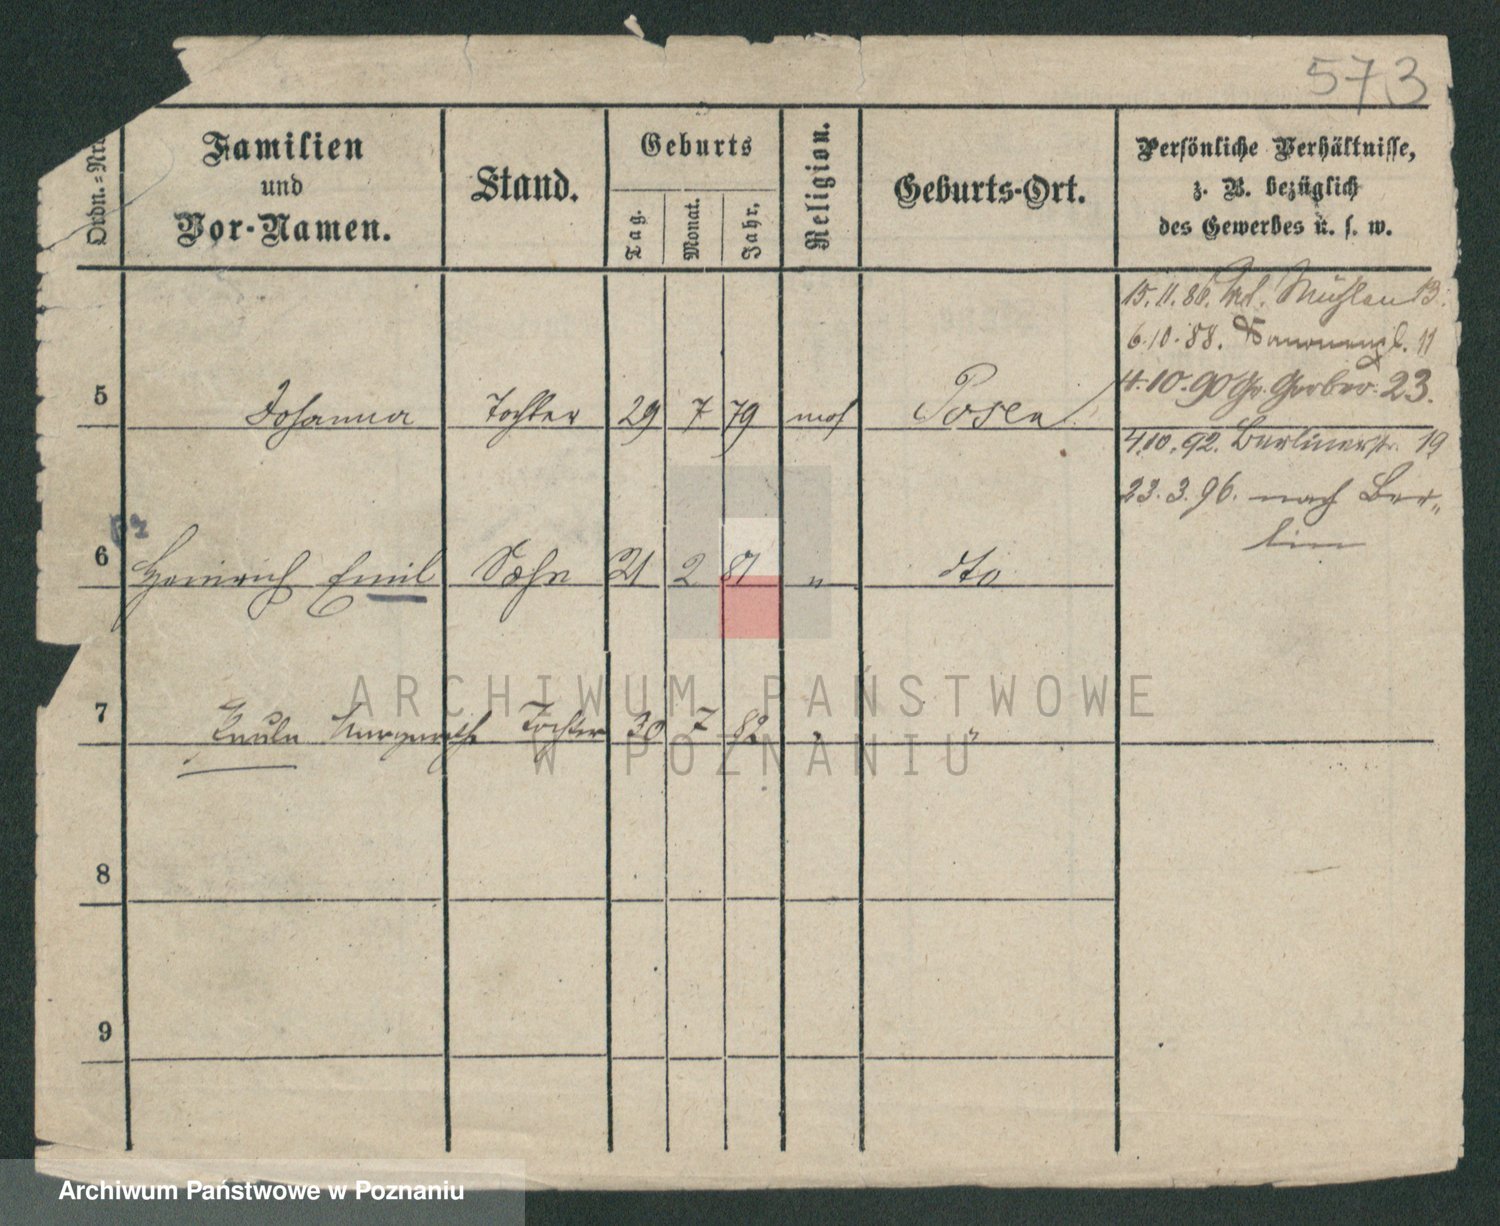 573
Ordn.-Nro.
Familien
und
Vor-Namen.
Stand.
Geburts
Tag.
Monat.
Jahr.
Religion.
Geburts-Ort.
Persönliche Verhältnisse,
z. B. bezüglich
des Gewerbes u. s. w.
15.11.86. Mühlen 13.
6.10.88. 11
4.10.90 Gr. Gerber. 23.
5 Johanna Tochter 29 7 79 mos Posen
4.10.92. Berlinerstr. 19
23.3.96. nach Ber-
lin
6 Heinrich Emil Sohn 21 2 81 " dto
7 Paula Margarethe Tochter 30 7 82 " "
8
9
ARCHIWUM PAŃSTWOWE
W POZNANIU
Archiwum Państwowe w Poznaniu